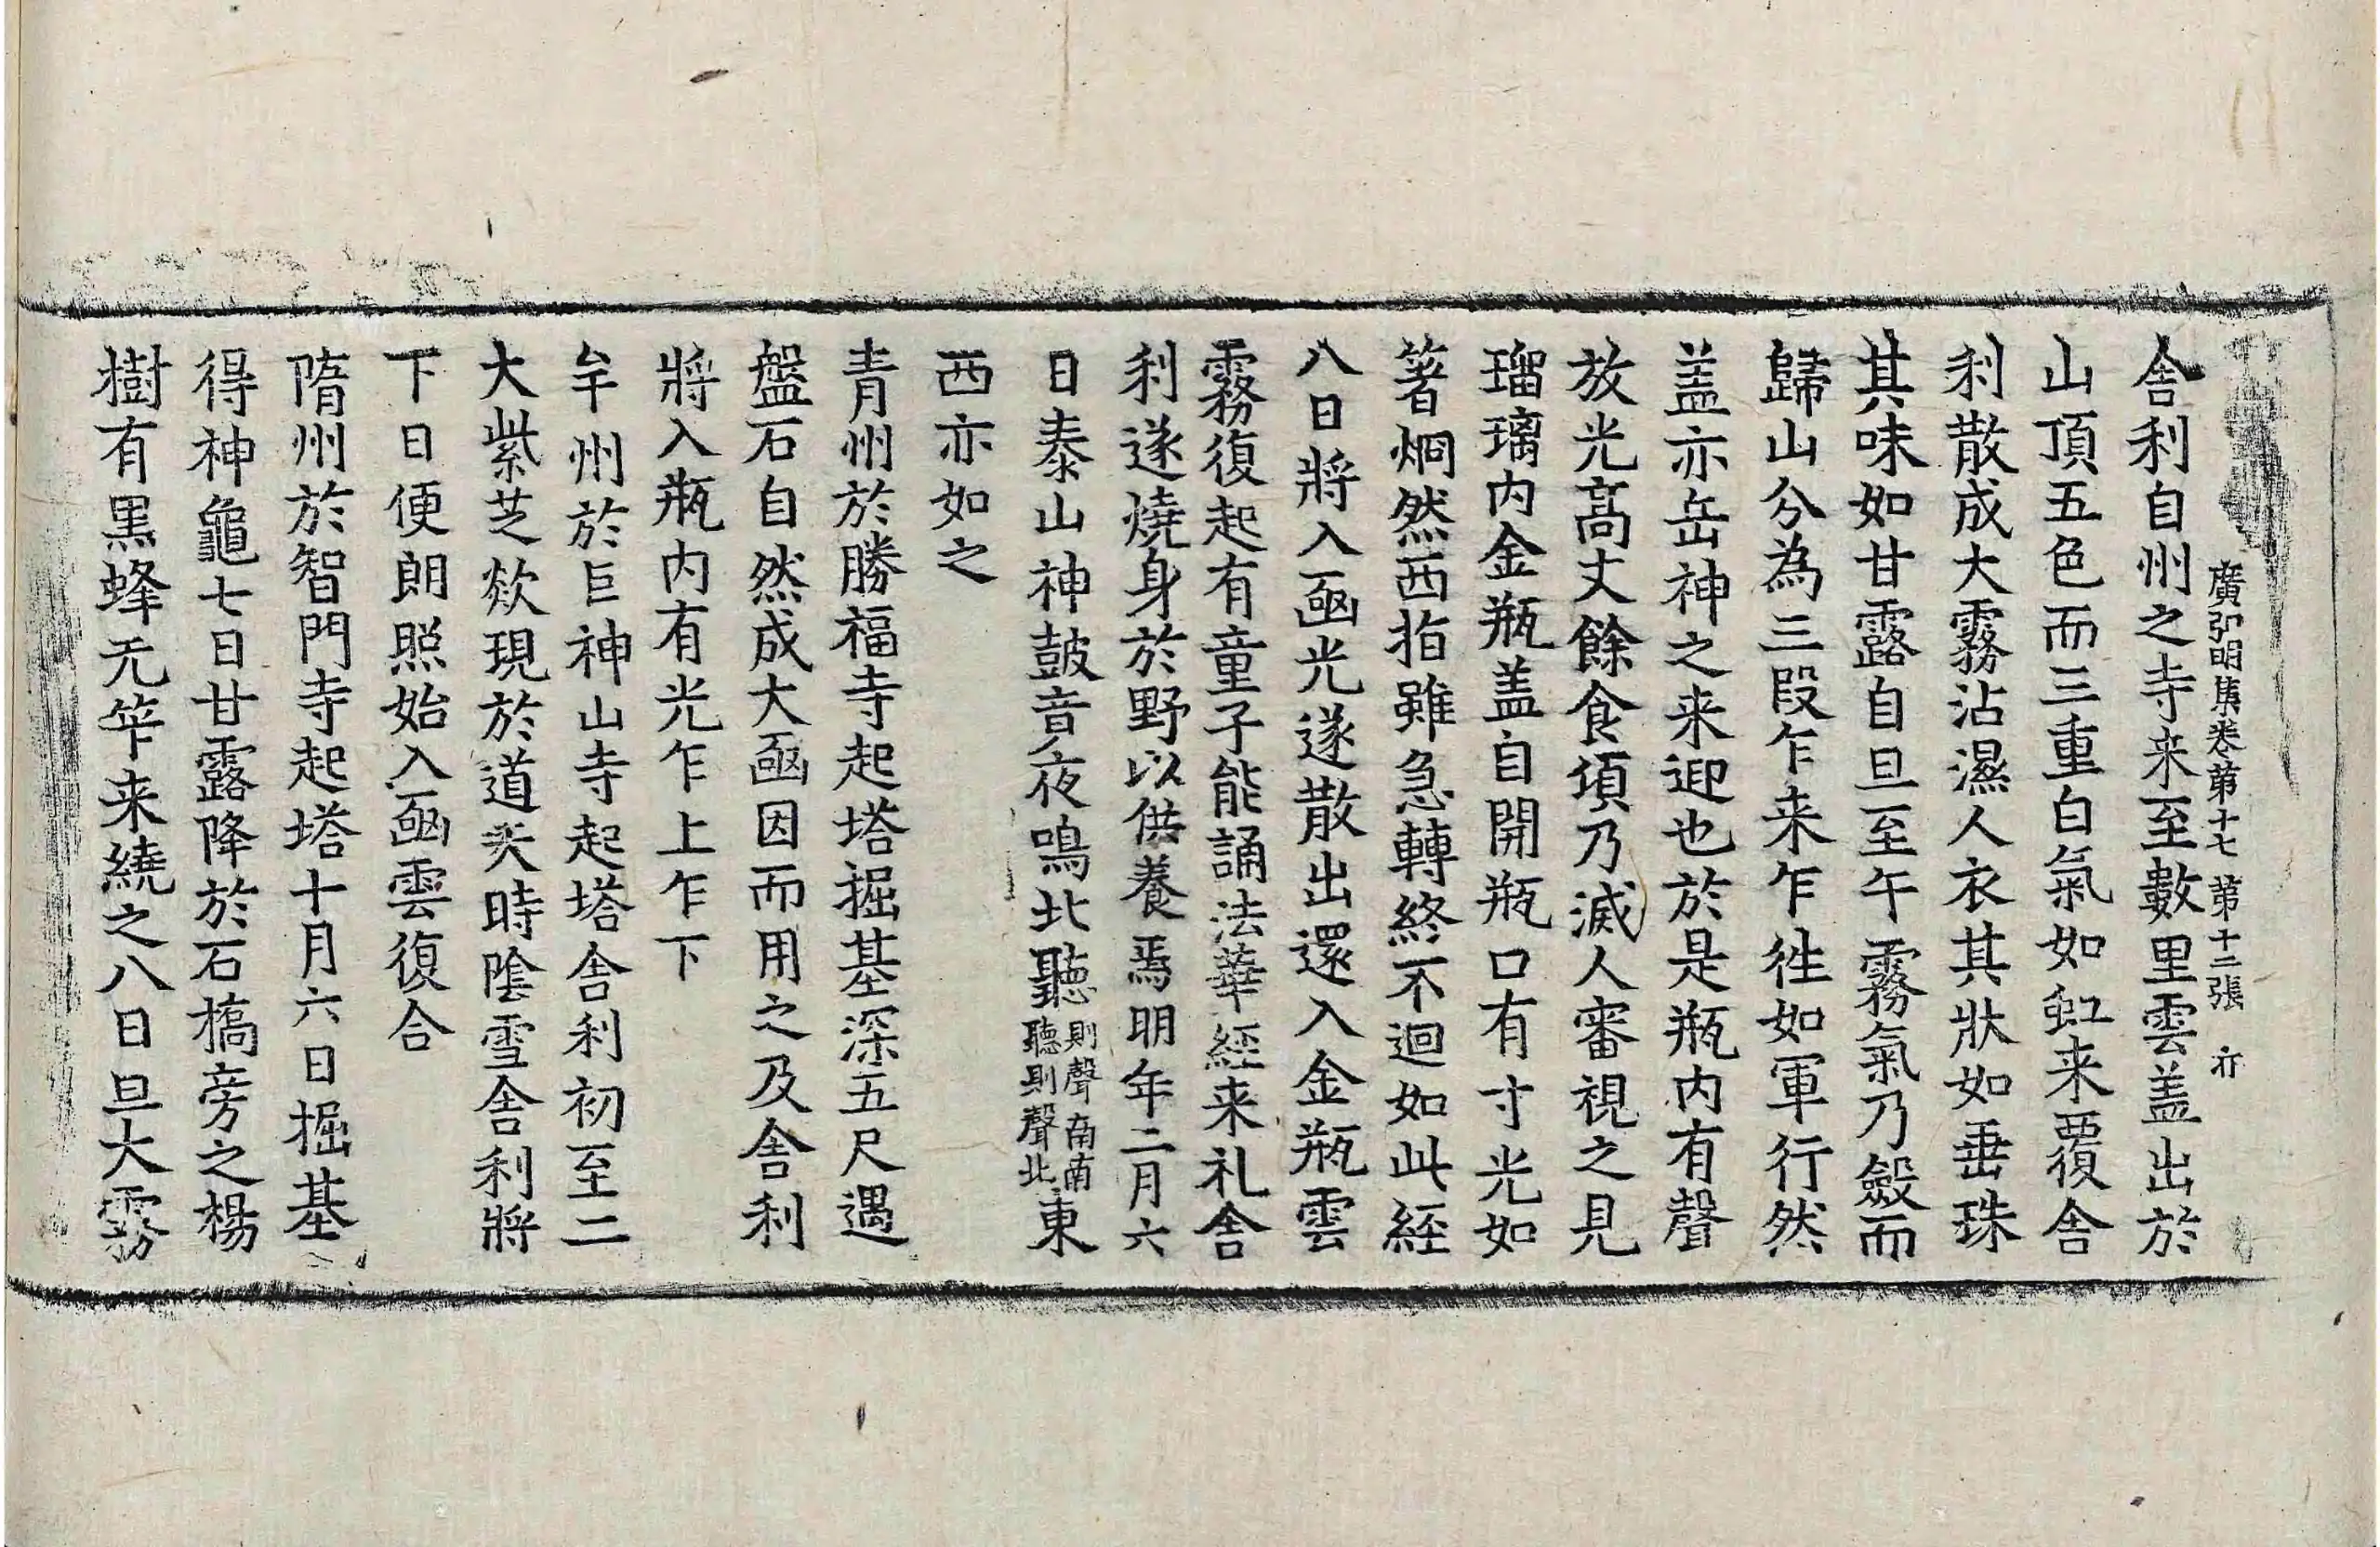 廣弘明集卷第十七 第十二張 亦
舎利自州之寺来至數里雲盖出於
山頂五色而三重白氣如虹来覆舎
利散成大霧沾濕人衣其狀如垂珠
其味如甘露自旦至午霧氣乃斂而
歸山分為三段乍来乍徃如軍行然
盖亦岳神之来迎也於是瓶内有聲
放光高丈餘食頃乃滅人審視之見
瑠璃内金瓶盖自開瓶口有寸光如
箸烱然西指雖急轉終不迴如此経
八日將入凾光遂散出還入金瓶雲
霧復起有童子能誦法華經来礼舎
利遂燒身於野以供養焉明年二月六
日泰山神鼓音夜鳴北聽則聲南南聽則聲北東
西亦如之
青州於勝福寺起塔掘基深五尺遇
盤石自然成大凾因而用之及舎利
將入瓶内有光乍上乍下
牟州於巨神山寺起塔舎利初至二
大紫芝欻現於道天時陰雪舎利將
下日便朗照始入凾雲復合
隋州於智門寺起塔十月六日掘基
得神龜七日甘露降於石橋旁之楊
樹有黒蜂无筭来繞之八日旦大霧